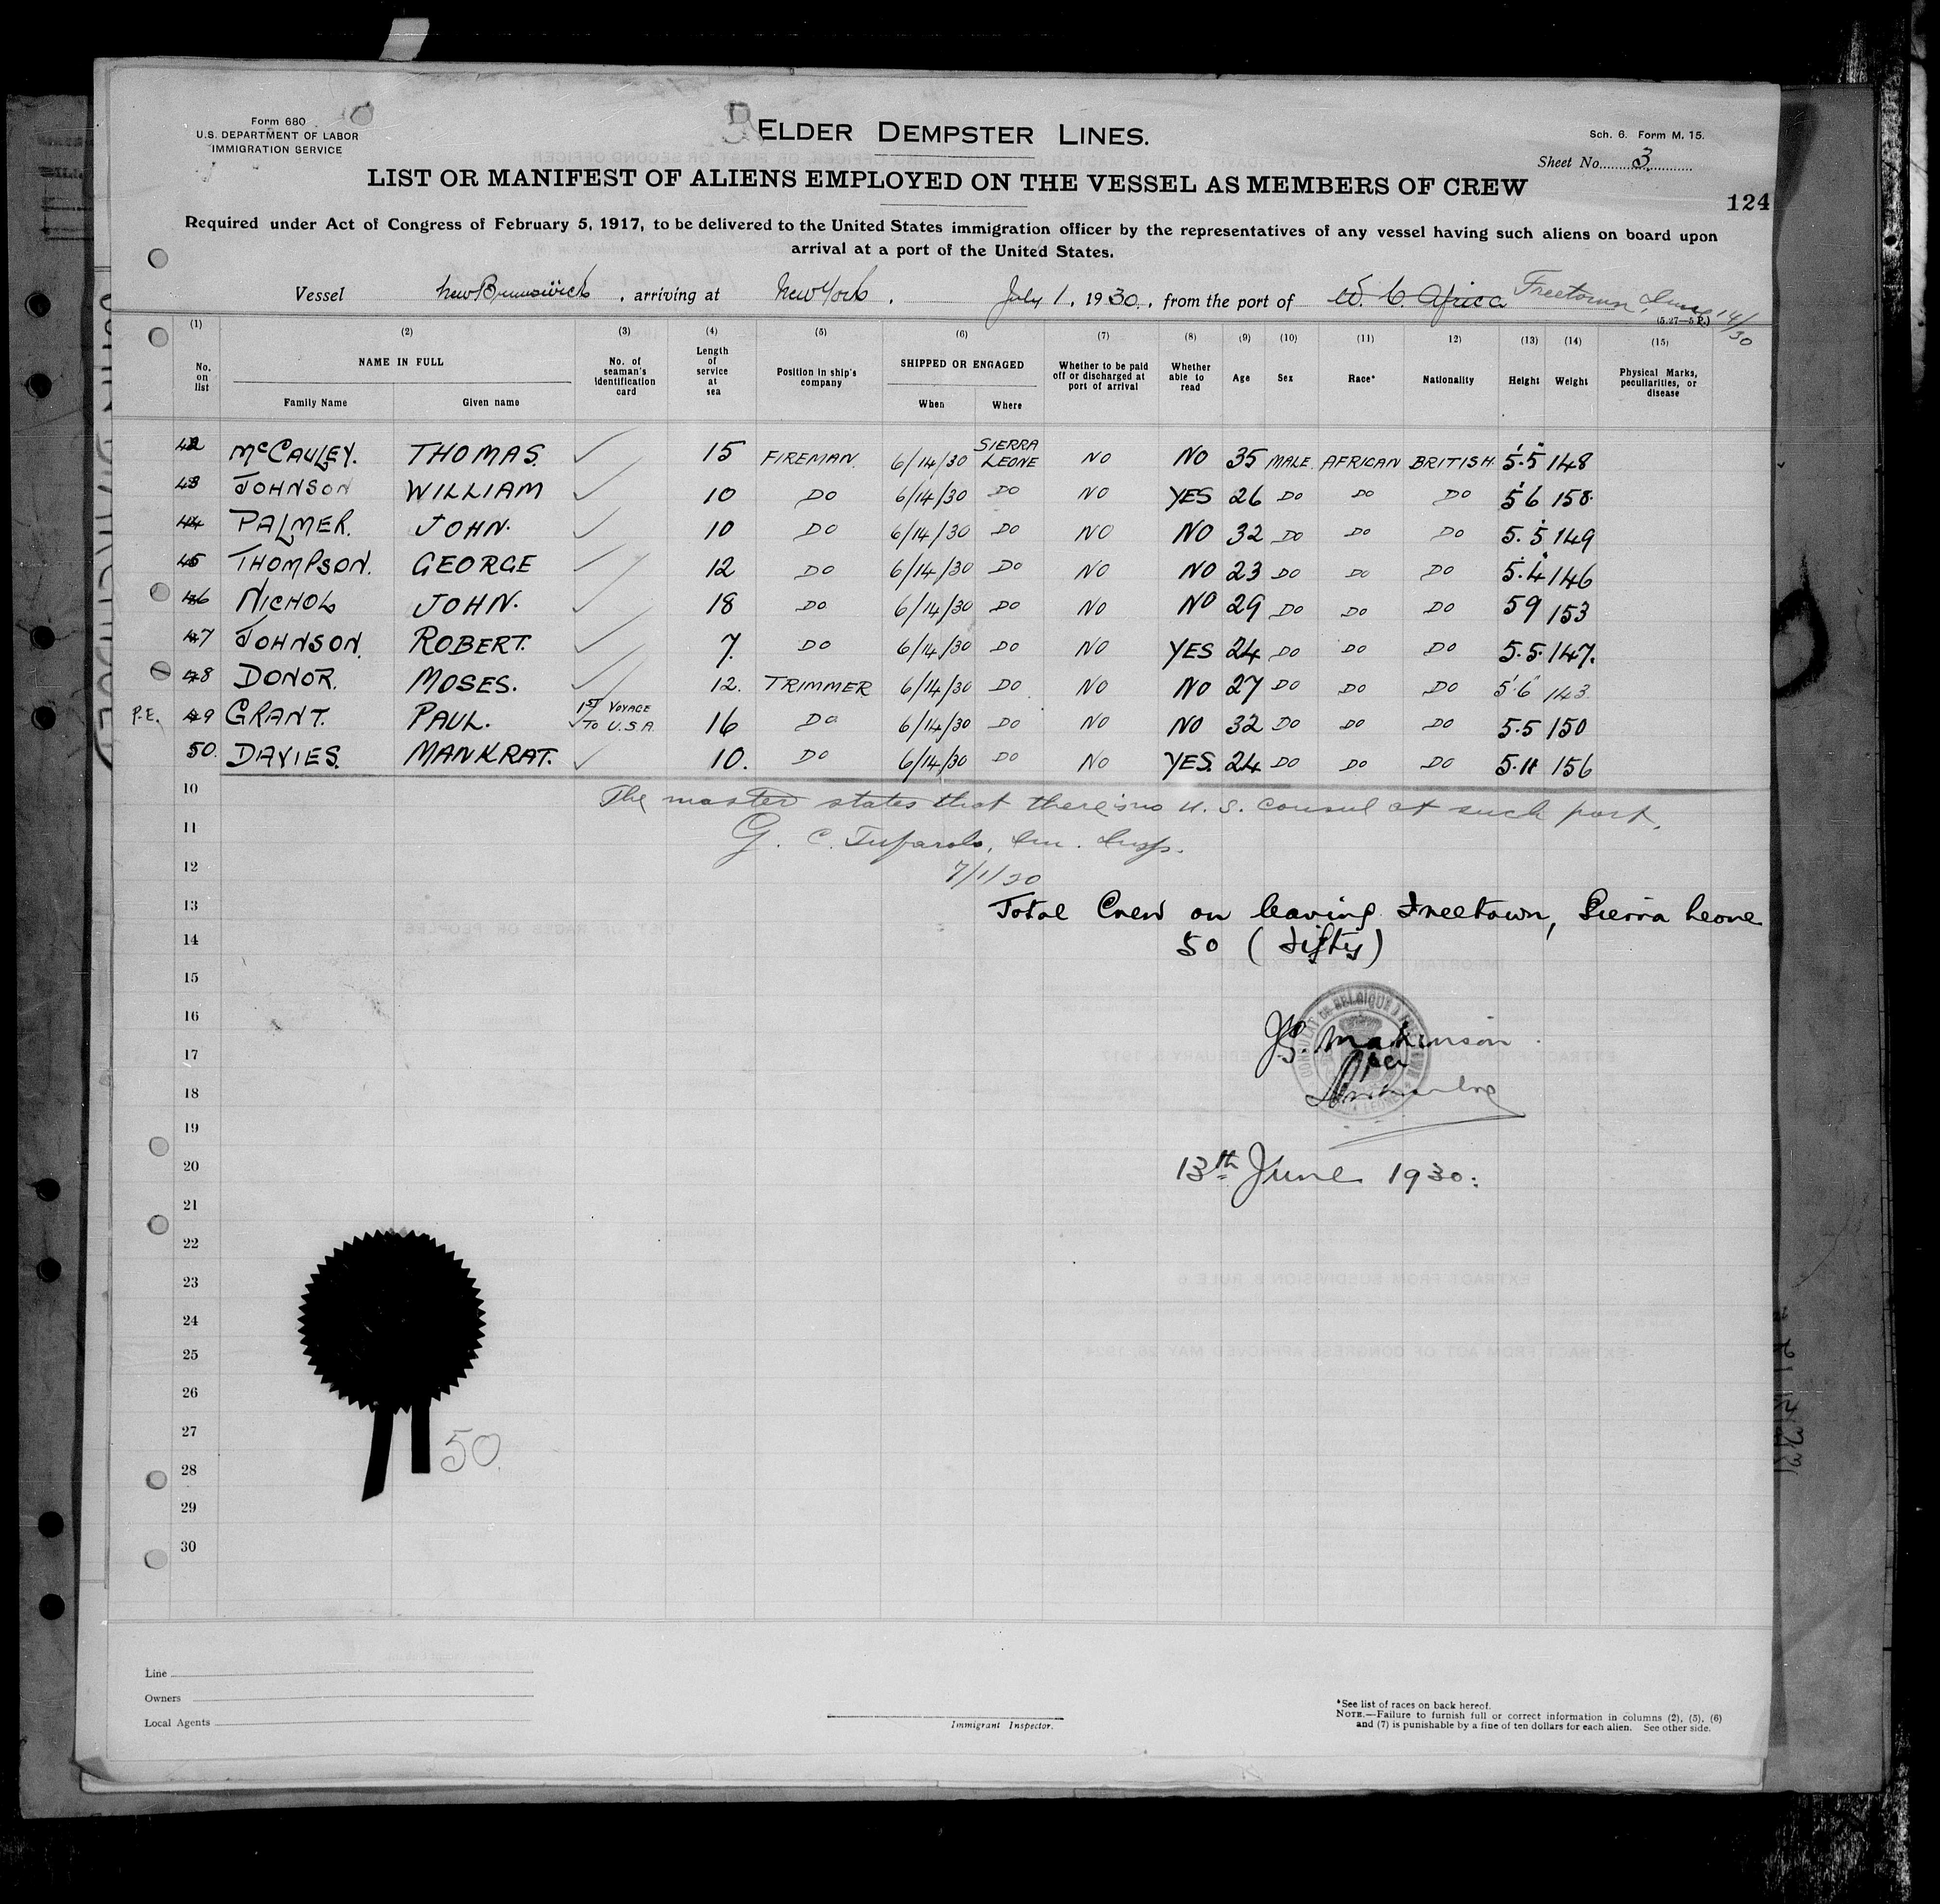 Form 680
U.S. DEPARTMENT OF LABOR
IMMIGRATION SERVICE
ELDER DEMPSTER LINES.
Sch. 6. Form M. 15.
Sheet No. 3
LIST OR MANIFEST OF ALIENS EMPLOYED ON THE VESSEL AS MEMBERS OF CREW
124
Required under Act of Congress of February 5, 1917, to be delivered to the United States immigration officer by the representatives of any vessel having such aliens on board upon
arrival at a port of the United States.
Vessel New Brunswick, arriving at New York, July 1, 1930, from the port of W. C. Africa Freetown, June 14/30
(5.27—5 P.)
(1) (2) (3) (4) (5) (6) (7) (8) (9) (10) (11) 12) (13) (14) (15)
No. on list NAME IN FULL Family Name Given name No. of seaman's identification card Length of service at sea Position in ship's company SHIPPED OR ENGAGED When Where Whether to be paid off or discharged at port of arrival Whether able to read Age Sex Race* Nationality Height Weight Physical Marks, peculiarities, or disease
42 McCAULEY. THOMAS. ✓ 15 FIREMAN. 6/14/30 SIERRA LEONE NO NO 35 MALE. AFRICAN BRITISH. 5'.5" 148
43 JOHNSON WILLIAM ✓ 10 DO 6/14/30 DO NO YES 26 DO DO DO 5'6 158.
44 PALMER. JOHN. ✓ 10 DO 6/14/30 DO NO NO 32 DO DO DO 5.5 149
45 THOMPSON. GEORGE ✓ 12 DO 6/14/30 DO NO NO 23 DO DO DO 5'.4" 146
46 NICHOL JOHN. ✓ 18 DO 6/14/30 DO NO NO 29 DO DO DO 59 153
47 JOHNSON. ROBERT. ✓ 7. DO 6/14/30 DO NO YES 24 DO DO DO 5.5. 147.
48 DONOR. MOSES. ✓ 12. TRIMMER 6/14/30 DO. NO NO 27 DO DO DO 5'.6" 143.
P.E. 49 GRANT. PAUL. 1ST VOYAGE ✓ TO U.S.A. 16 DO 6/14/30 DO NO NO 32 DO DO DO 5.5 150
50. DAVIES. MANKRAT. ✓ 10. DO 6/14/30 DO NO YES. 24 DO DO DO 5.11 156
10
The master states that there is no U. S. Consul at such port.
11
G. C. Imm. Insp.
12
7/1/30
13
Total Crew on leaving Freetown, Sierra Leone
14
50 (fifty)
15
16
CONSULAT DE BELGIQUE
17
18
LEONE
19
20
13th June 1930.
21
22
23
24
25
26
27
50
28
29
30
Line
Owners
Local Agents
Immigrant Inspector.
*See list of races on back hereof.
NOTE.—Failure to furnish full or correct information in columns (2), (5), (6)
and (7) is punishable by a fine of ten dollars for each alien. See other side.